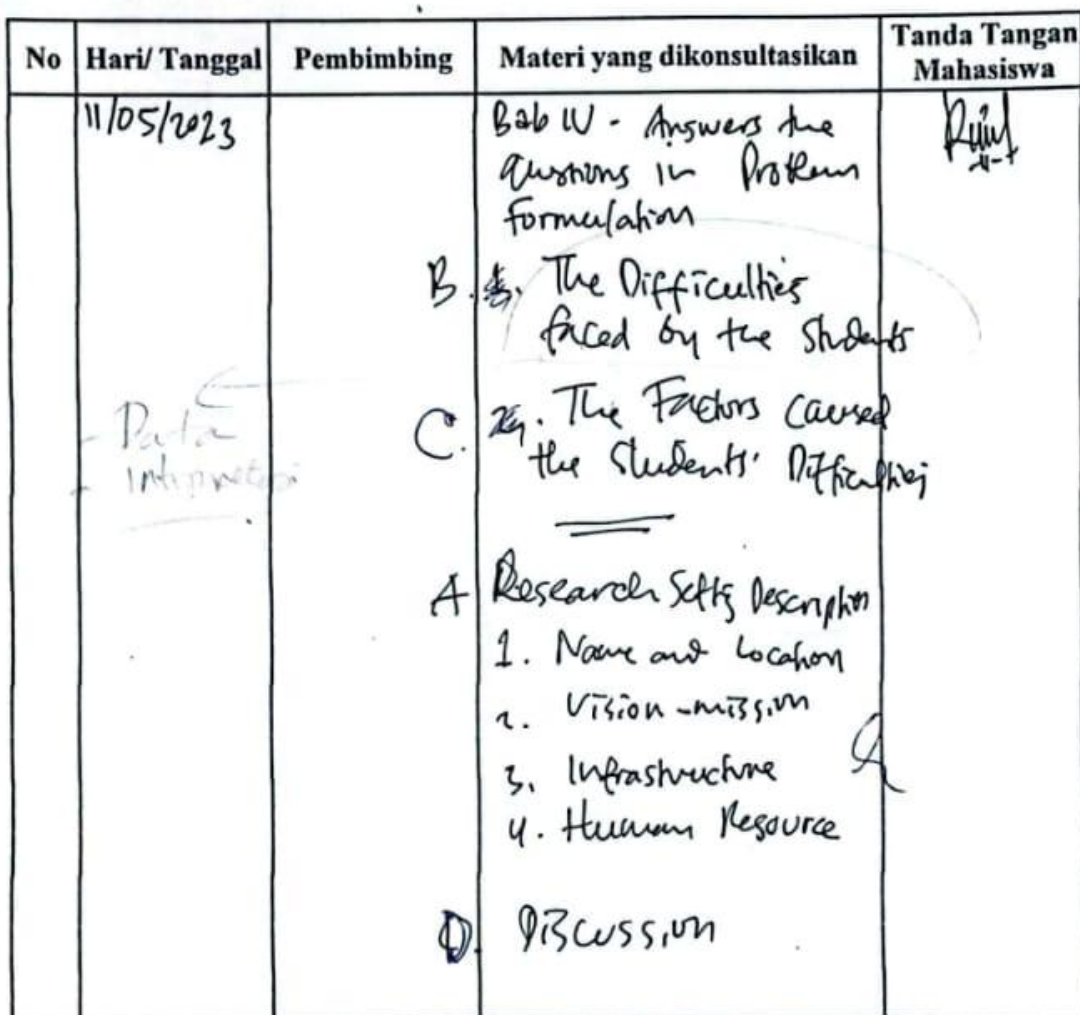 No Hari/ Tanggal Pembimbing Materi yang dikonsultasikan Tanda Tangan
Mahasiswa
11/05/2023 Bab IV - Answers the
Questions in Problem
Formulation
B. The Difficulties
faced by the Students
C. The Factors caused
the Students' Difficulties
- Data
- Intipretasi
A Research Settg Description
1. Name and Location
2. Vision-mission
3. Infrastructure
4. Human Resource
D. Discussion